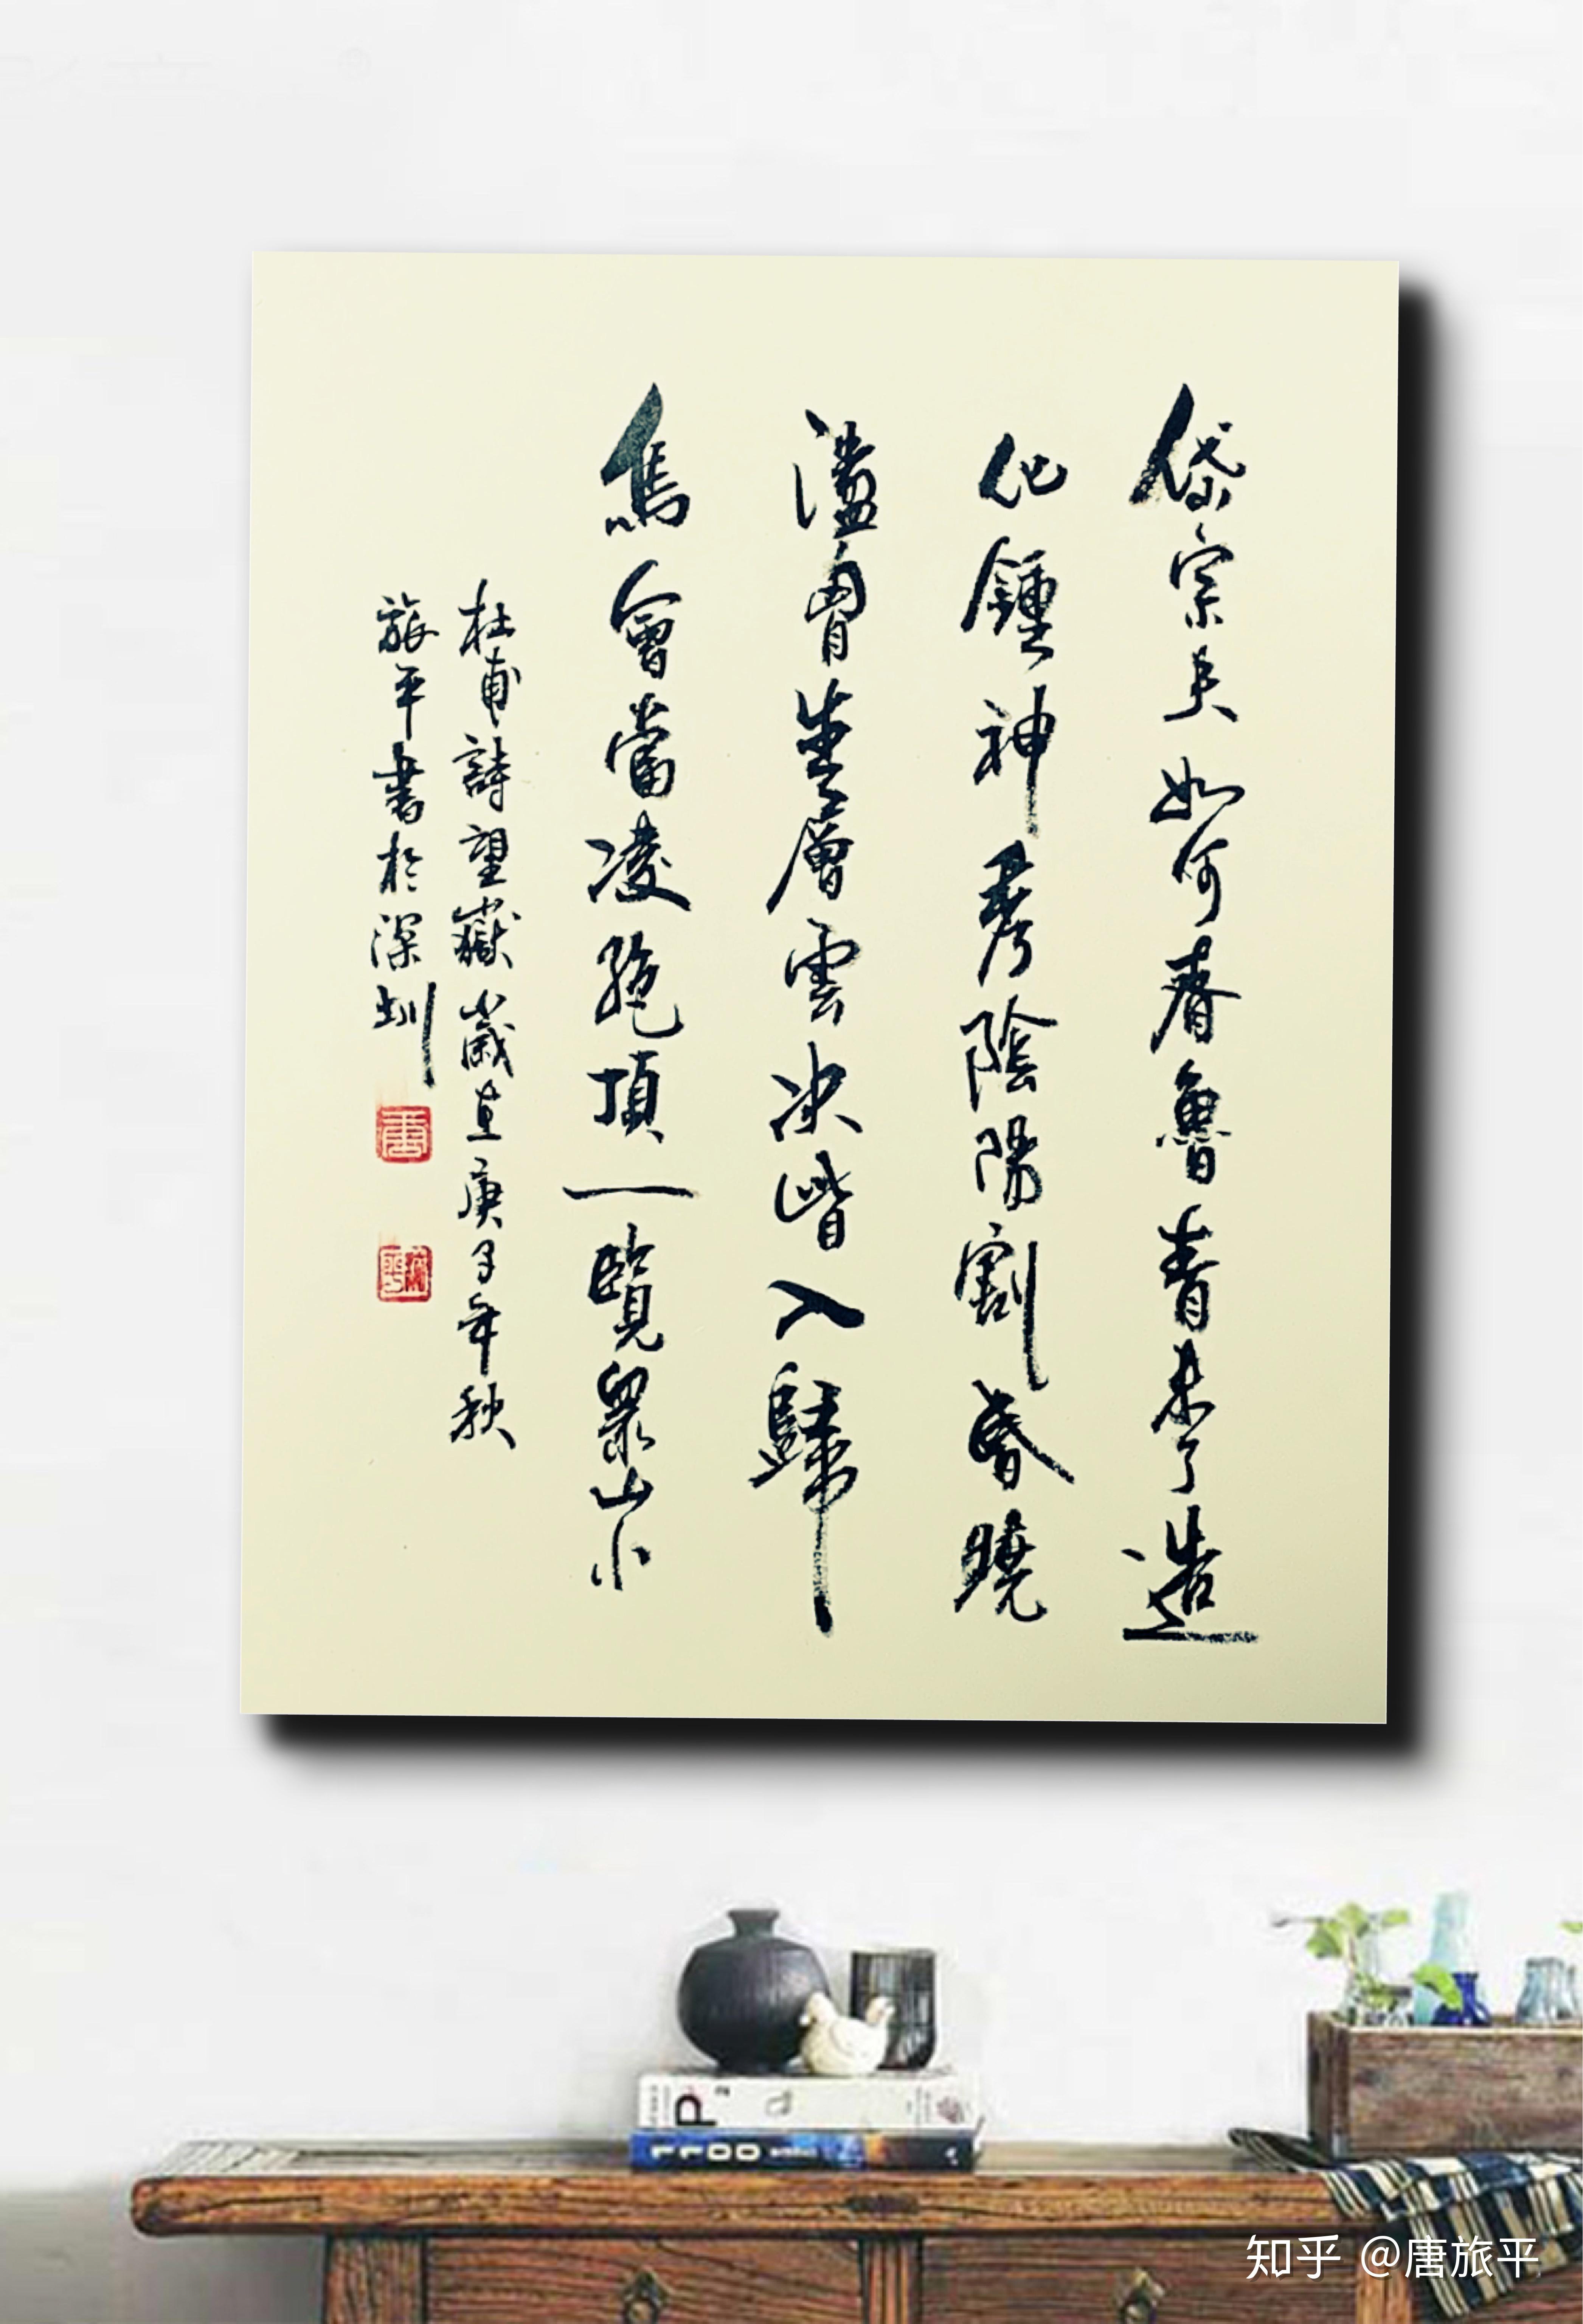 岱宗夫如何齊魯青未了造
化鍾神秀陰陽割昏曉
盪胷生層雲决眥入歸
鳥會當凌絕頂一覽眾山小
杜甫詩望嶽歲在庚子年秋
旅平書於深圳
唐
P²
1100
知乎 @唐旅平